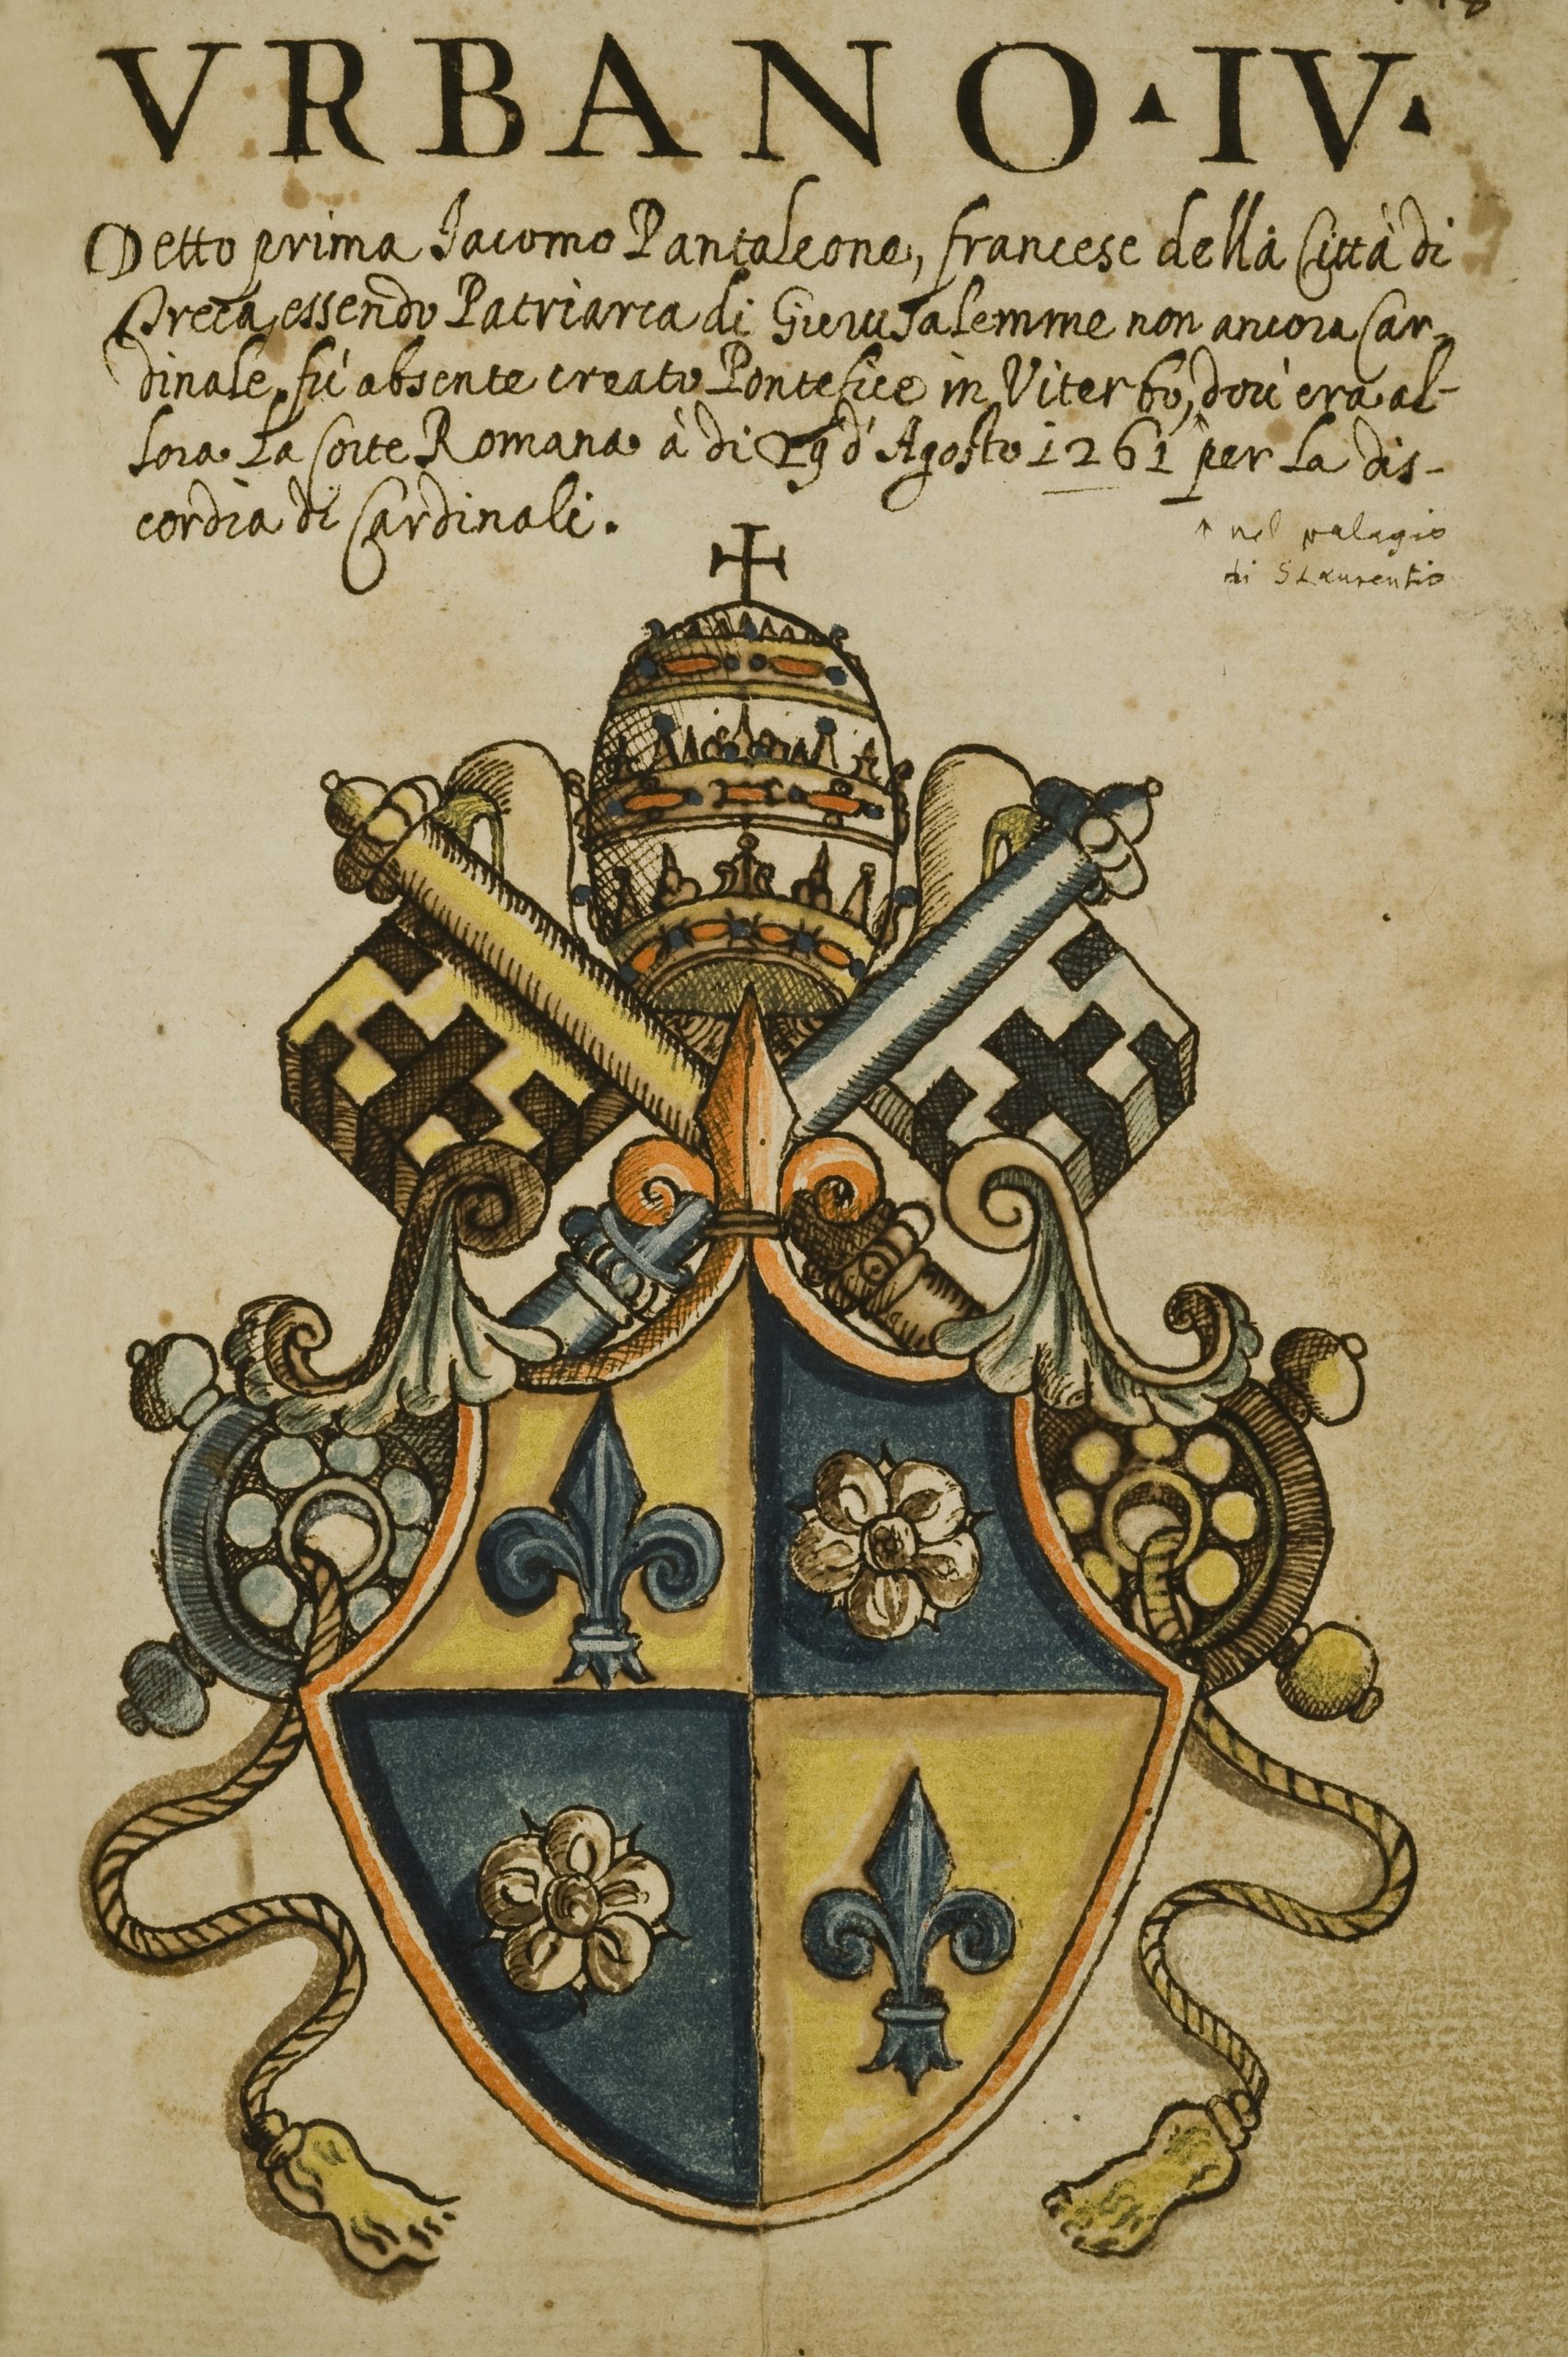 VRBANO·IV·
Detto prima Iacomo Pantaleone, francese della Città di
Treca, essendo Patriarca di Gierusalemme non ancora Car-
dinale, fù absente creato Pontefice in Viterbo, dou' era al-
lora La Corte Romana à di 29 d' Agosto 1261 per La dis-
cordia di Cardinali.
nel palagio
di S Laurentio